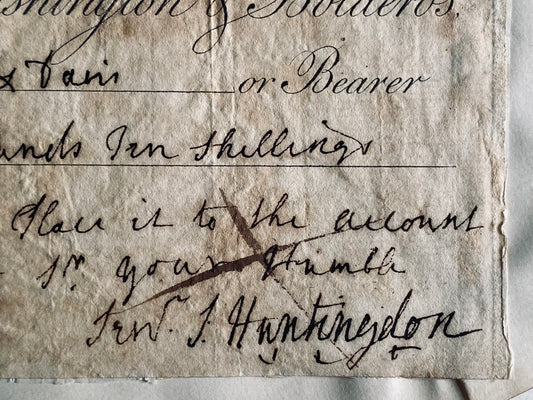 shington & Bolderos.
& Davis or Bearer
unds Ten Shillings
Place it to the account
Sr. your Humble
Serv.t S. Huntingdon